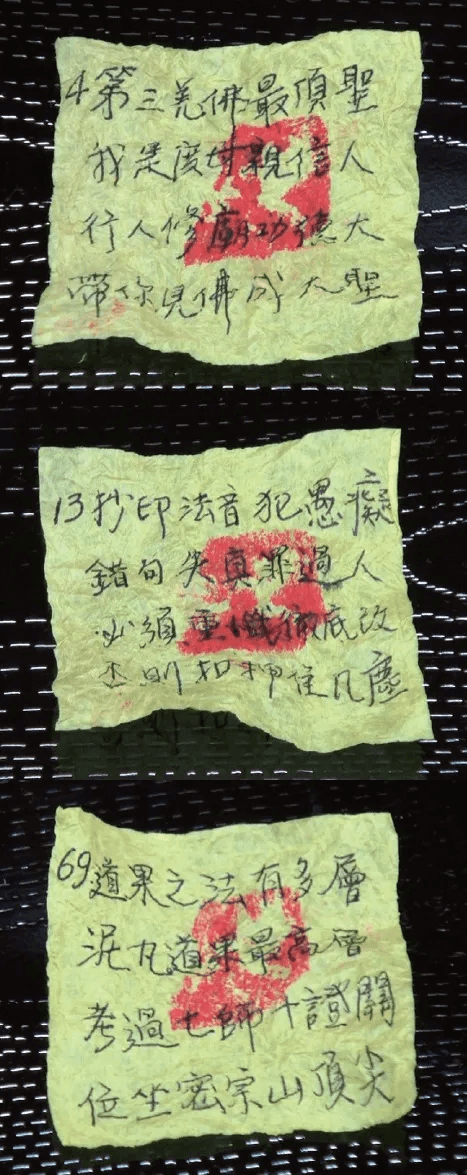 4第三羌佛最頂聖
我是度母親信人
行人修廟功德大
帶你見佛成大聖
13抄印法音犯愚癡
錯句失真罪過人
必須重懺徹底改
否則扣押住凡塵
69道果之法有多層
泥丸道果最高層
考過七師十證關
位坐密宗山頂尖